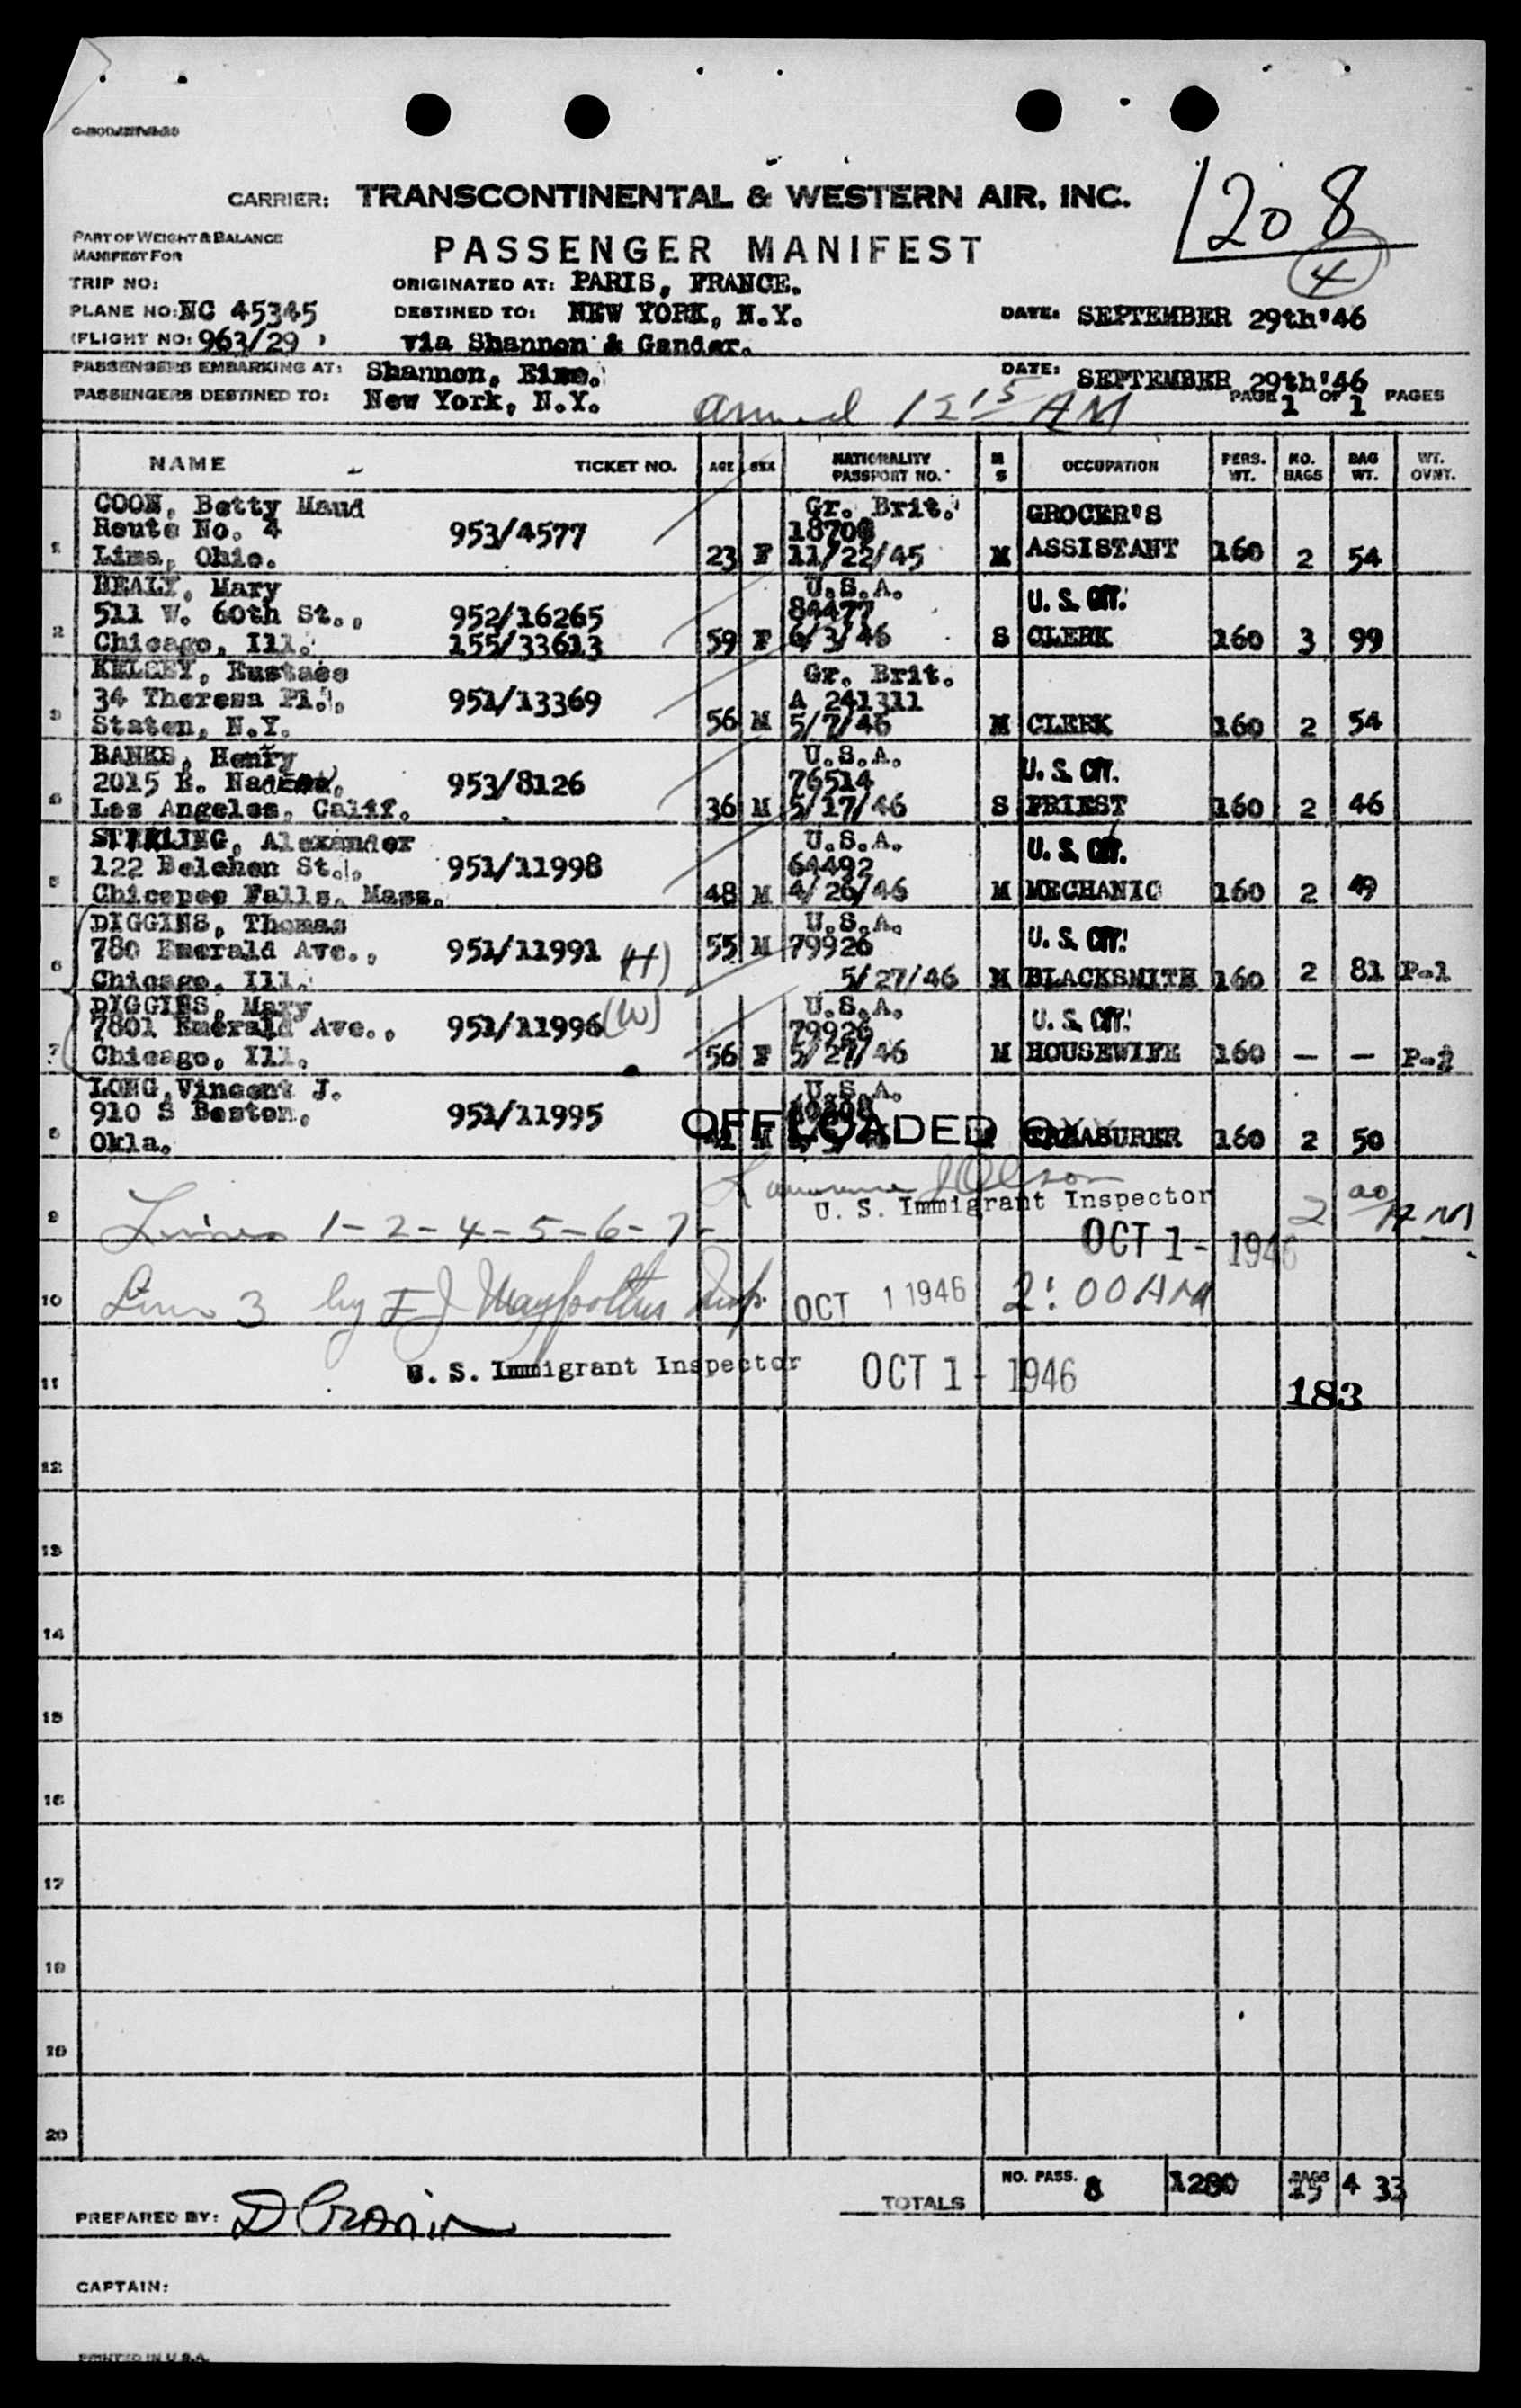 CARRIER: TRANSCONTINENTAL & WESTERN AIR, INC.
1208
PART OF WEIGHT & BALANCE
MANIFEST FOR
PASSENGER MANIFEST
4
TRIP NO:
ORIGINATED AT: PARIS, FRANCE.
PLANE NO: NC 45345
DESTINED TO: NEW YORK, N.Y.
DATE: SEPTEMBER 29th'46
(FLIGHT NO: 963/29 )
via Shannon & Gander.
PASSENGERS EMBARKING AT: Shannon, Eire.
DATE: SEPTEMBER 29th'46
PASSENGERS DESTINED TO: New York, N.Y.
PAGE 1 OF 1 PAGES
Arrived 12 15 AM
NAME TICKET NO. AGE SEX NATIONALITY PASSPORT NO. M S OCCUPATION PERS. WT. NO. BAGS BAG WT. WT. OVNT.
COON, Betty Maud Gr. Brit. GROCER'S
Route No. 4 953/4577 18700
1 Lima, Ohio. 23 F 11/22/45 M ASSISTANT 160 2 54
HEALY, Mary U.S.A. U. S. CIT.
511 W. 60th St., 952/16265 84477
2 Chicago, Ill. 155/33613 59 F 6/3/46 S CLERK 160 3 99
KELSEY, Eustace Gr. Brit.
34 Theresa Pl., 951/13369 A 241311
3 Staten, N.Y. 56 M 5/7/46 M CLERK 160 2 54
BANKS, Henry U.S.A. U. S. CIT.
2015 E. 953/8126 76514
4 Los Angeles, Calif. 36 M 5/17/46 S PRIEST 160 2 46
STERLING, Alexander U.S.A. U. S. CIT.
122 Belchen St., 951/11998 64492
5 Chicopee Falls, Mass. 48 M 4/26/46 M MECHANIC 160 2 49
DIGGINS, Thomas U.S.A. U. S. CIT.
780 Emerald Ave., 951/11991 (H) 55 M 79926
6 Chicago, Ill. 5/27/46 M BLACKSMITH 160 2 81 P-1
DIGGINS, Mary U.S.A. U. S. CIT.
7801 Emerald Ave., 951/11996 (W) 79926
7 Chicago, Ill. 56 F 5/27/46 M HOUSEWIFE 160 — — P-2
LONG, Vincent J. U.S.A.
910 S Boston, 951/11995
OFFLOADED
8 Okla. 41 M TREASURER 160 2 50
U. S. Immigrant Inspector
9 Lines 1-2-4-5-6-7- 2 00 AM
OCT 1 - 1946
10 Line 3 by Insp. OCT 1 1946 2:00 AM
U. S. Immigrant Inspector OCT 1 - 1946
11 183
12
13
14
15
16
17
18
19
20
TOTALS NO. PASS. 8 1280 BAGS 15 433
PREPARED BY: D Cronin
CAPTAIN:
PRINTED IN U.S.A.